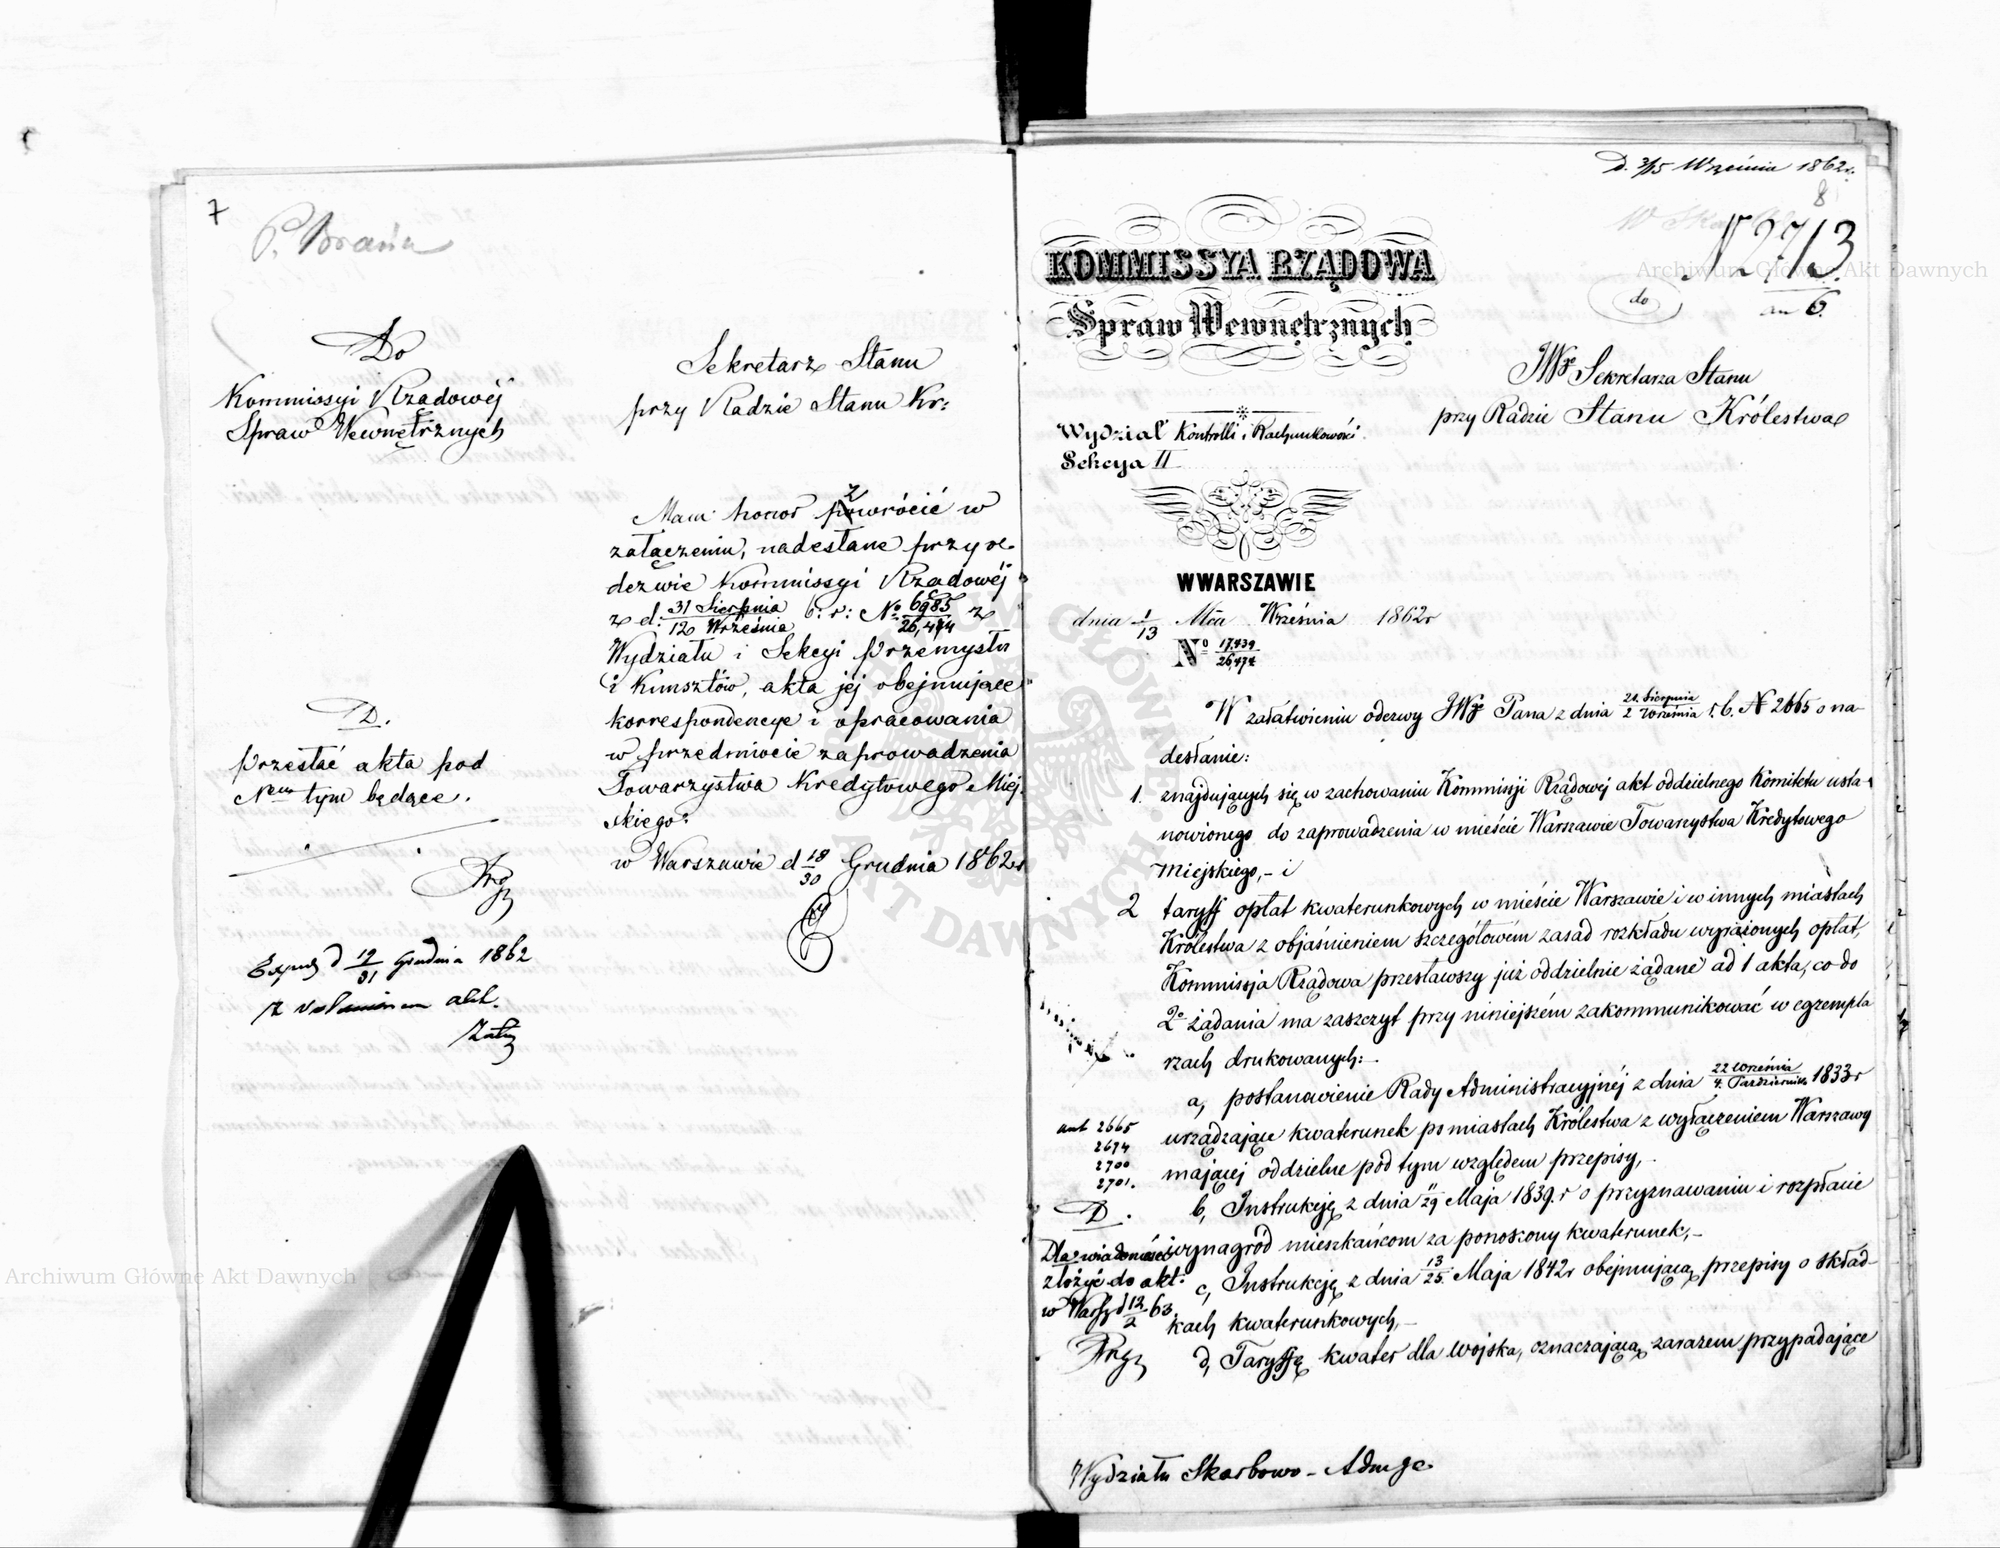 7
Do
Kommissyi Rządowéj
Spraw Wewnętrznych
Sekretarz Stanu
przy Radzie Stanu Kr:
Mam honor zwrócić w
załączeniu, nadesłane przy o-
dezwie Kommissyi Rządowéj
z d: 31 Sierpnia / 12 Września b: r: No 6985 / 26,474 z
Wydziału i Sekcyi Przemysłu
i Kunsztów, akta jej obejmujące
korrespondencye i opracowania
w przedmiocie zaprowadzenia
Towarzystwa Kredytowego Miej-
skiego.
w Warszawie d 18/30 Grudnia 1862 r
D.
Przesłać akta pod
Nem tym będące.
Exped d 19/31 Grudnia 1862
z volumenem akt.
D. 3/15 Września 1862 r.
8
N 2713
do
KOMMISSYA RZĄDOWA
Spraw Wewnętrznych
JWgo Sekretarza Stanu
przy Radzie Stanu Królestwa
Wydział Kontrolli i Rachunkowości.
Sekcya II
W WARSZAWIE
dnia 1/13 Mca Września 1862 r
No 17,439 / 26,474
W załatwieniu odezwy JWgo Pana z dnia 21 Sierpnia / 2 Września r. b. N 2665 o na-
desłanie:
1. znajdujących się w zachowaniu Kommissji Rządowéj akt oddzielnego Komitetu usta-
nowionego do zaprowadzenia w mieście Warszawie Towarzystwa Kredytowego
Miejskiego, - i
2 taryff opłat kwaterunkowych w mieście Warszawie i w innych miastach
Królestwa z objaśnieniem szczegółowém zasad rozkładu wyrażonych opłat,
Kommissja Rządowa przesławszy już oddzielnie żądane ad 1 akta, co do
2o żądania ma zaszczyt przy niniejszém zakommunikować w egzempla
rzach drukowanych: -
a, postanowienie Rady Administracyjnéj z dnia 22 Września / 4 Października 1833 r
urządzające kwaterunek po miastach Królestwa z wyłączeniem Warszawy
mającéj oddzielne pod tym względem przepisy, -
b, Instrukcję z dnia 17/29 Maja 1839. r o przyznawaniu i rozpłacie
wynagród mieszkańcom za ponoszony kwaterunek, -
c, Instrukcję z dnia 13/25 Maja 1842 r obejmującą przepisy o skład-
kach kwaterunkowych, -
d, Taryffę kwater dla wojska, oznaczającą zarazem przypadające
ant 2665
2674
2700
2701.
D.
Dla wiadomości
złożyć do akt.
w Warsz d 12/2 63.
Wydziału Skarbowo - Admgo
Archiwum Główne Akt Dawnych
Archiwum Główne Akt Dawnych